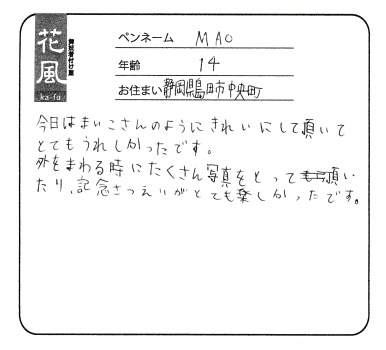 花風
舞妓着付け屋
ka-fu
ペンネーム MAO
年齢 14
お住まい 静岡県島田市中央町
今日はまいこさんのようにきれいにして頂いて
とてもうれしかったです。
外をまわる時にたくさん写真をとって頂い
たり、記念さつえいがとても楽しかったです。